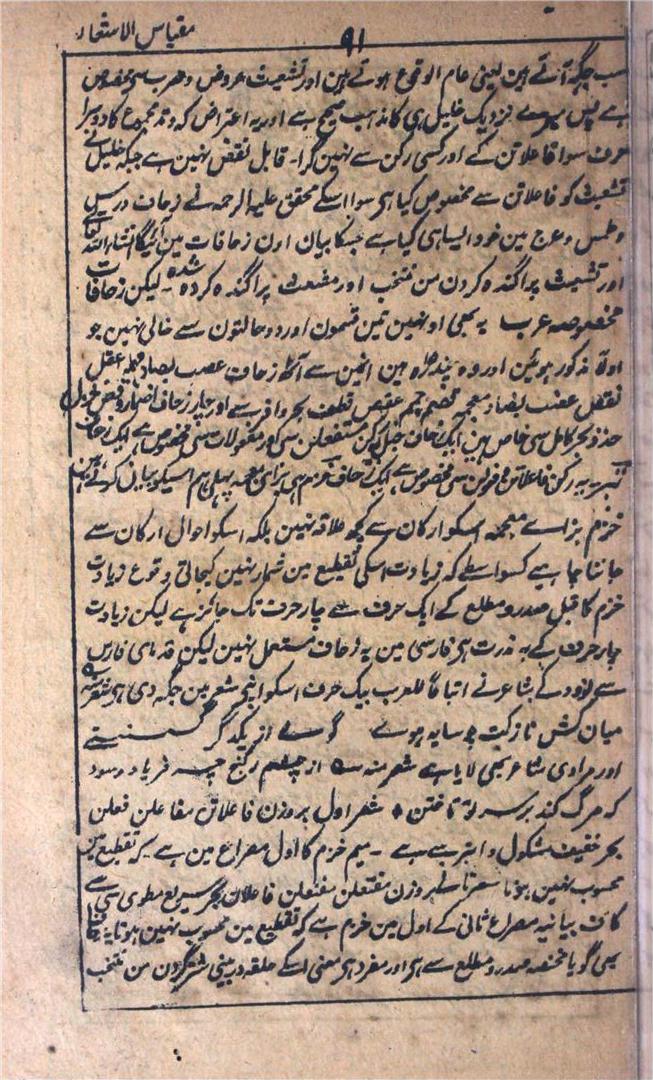 مقیاس الاشعار
۹۱
سب جگہ آتے ہین یعنی عام الوقوع ہوتے ہین اور تشعیث عروض وضرب سی مخصوص
ہے پس میرے نزدیک خلیل ہی کا مذہب صحیح ہے اور یہ اعتراض کہ وتد مجموع کا دوسرا
حرف سوا فاعلاتن کے اور کسی رکن سے نہین گرا۔ قابل نقض نہین ہے جبکہ خلیل نے
تشعیث کو فاعلاتن سے مخصوص کیا ہی سوا اسکے محقق علیہ الرحمہ نے زحاف درس
وطمس وعرج مین خود ایسا ہی کیا ہے جسکا بیان اون زحافات مین آئیگا انشاء اللہ تعالیٰ
اور تشعیث پراگندہ کردن من منتخب اور مشعث پراگندہ کردہ شدہ۔ لیکن زحافات
مخصوصہ عرب یہ بھی او نہین تین قسمون اور دو حالتون سے خالی نہین جو
اولاً مذکور ہوئین اور وہ پندرہ ہین انمین سے آٹھ زحاف عصب بصاد مہملہ عقل
نقص عضب بضاد معجمہ قصم جمم عقص قطف بحر وافر سے اور چار زحاف اضمار وقص خزل
حذذ بحر کامل سی خاص ہین ایک زحاف خبل رکن مستفعلن سی اور مفعولات سی مخصوص ہے ایک زحاف
بتر یہ رکن فاعلاتن وفعولن سی مخصوص ہے ایک زحاف خزم ہی بزای معجمہ پہلی ہم اسیکو بیان کرتے ہین
خزم بزاے معجمہ اسکو ارکان سے کچھ علاقہ نہین بلکہ اسکو احوال ارکان سے
جاننا چاہیے کسواسطے کہ زیادت اسکی تقطیع مین شمار نہین کیجاتی وقوع زیادت
خزم کا قبل صدر ومطلع کے ایک حرف سے چار حرف تک جائز ہے لیکن زیادت
چار حرف کے بہ ندرت ہی فارسی مین یہ زحاف مستعمل نہین لیکن قدمای فارس
سے رودکے شاعر نے اتباعاً للعرب یک حرف اسکو اپنی شعر مین جگہ دی ہی شعر
میان کش نازکت چو سایہ موے گوے از یکدگر گسستے
اور مرادی شاعر بھی لایا ہے شعر منہ از چشم رنج چہ فریاد وسود
کہ مرگ کند بر سر تو تاختن ٭ شعر اول بروزن فاعلاتن مفاعلن فعلن
بحر خفیف مشکول وابتر سے ہے۔ میم خزم کا اول مصراع مین ہے کہ تقطیع مین
محسوب نہین ہوتا شعر ثانی بروزن مفتعلن مفتعلن فاعلان بحر سریع مطوی سی ہے
کاف بیانیہ مصراع ثانی کے اول مین خزم ہے کہ تقطیع مین محسوب نہین ہوتا یہ زحاف
بھی گویا مختصہ صدر ومطلع سے ہی اور مفرد ہی معنی اسکے حلقہ در بینی شتر کردن من منتخب